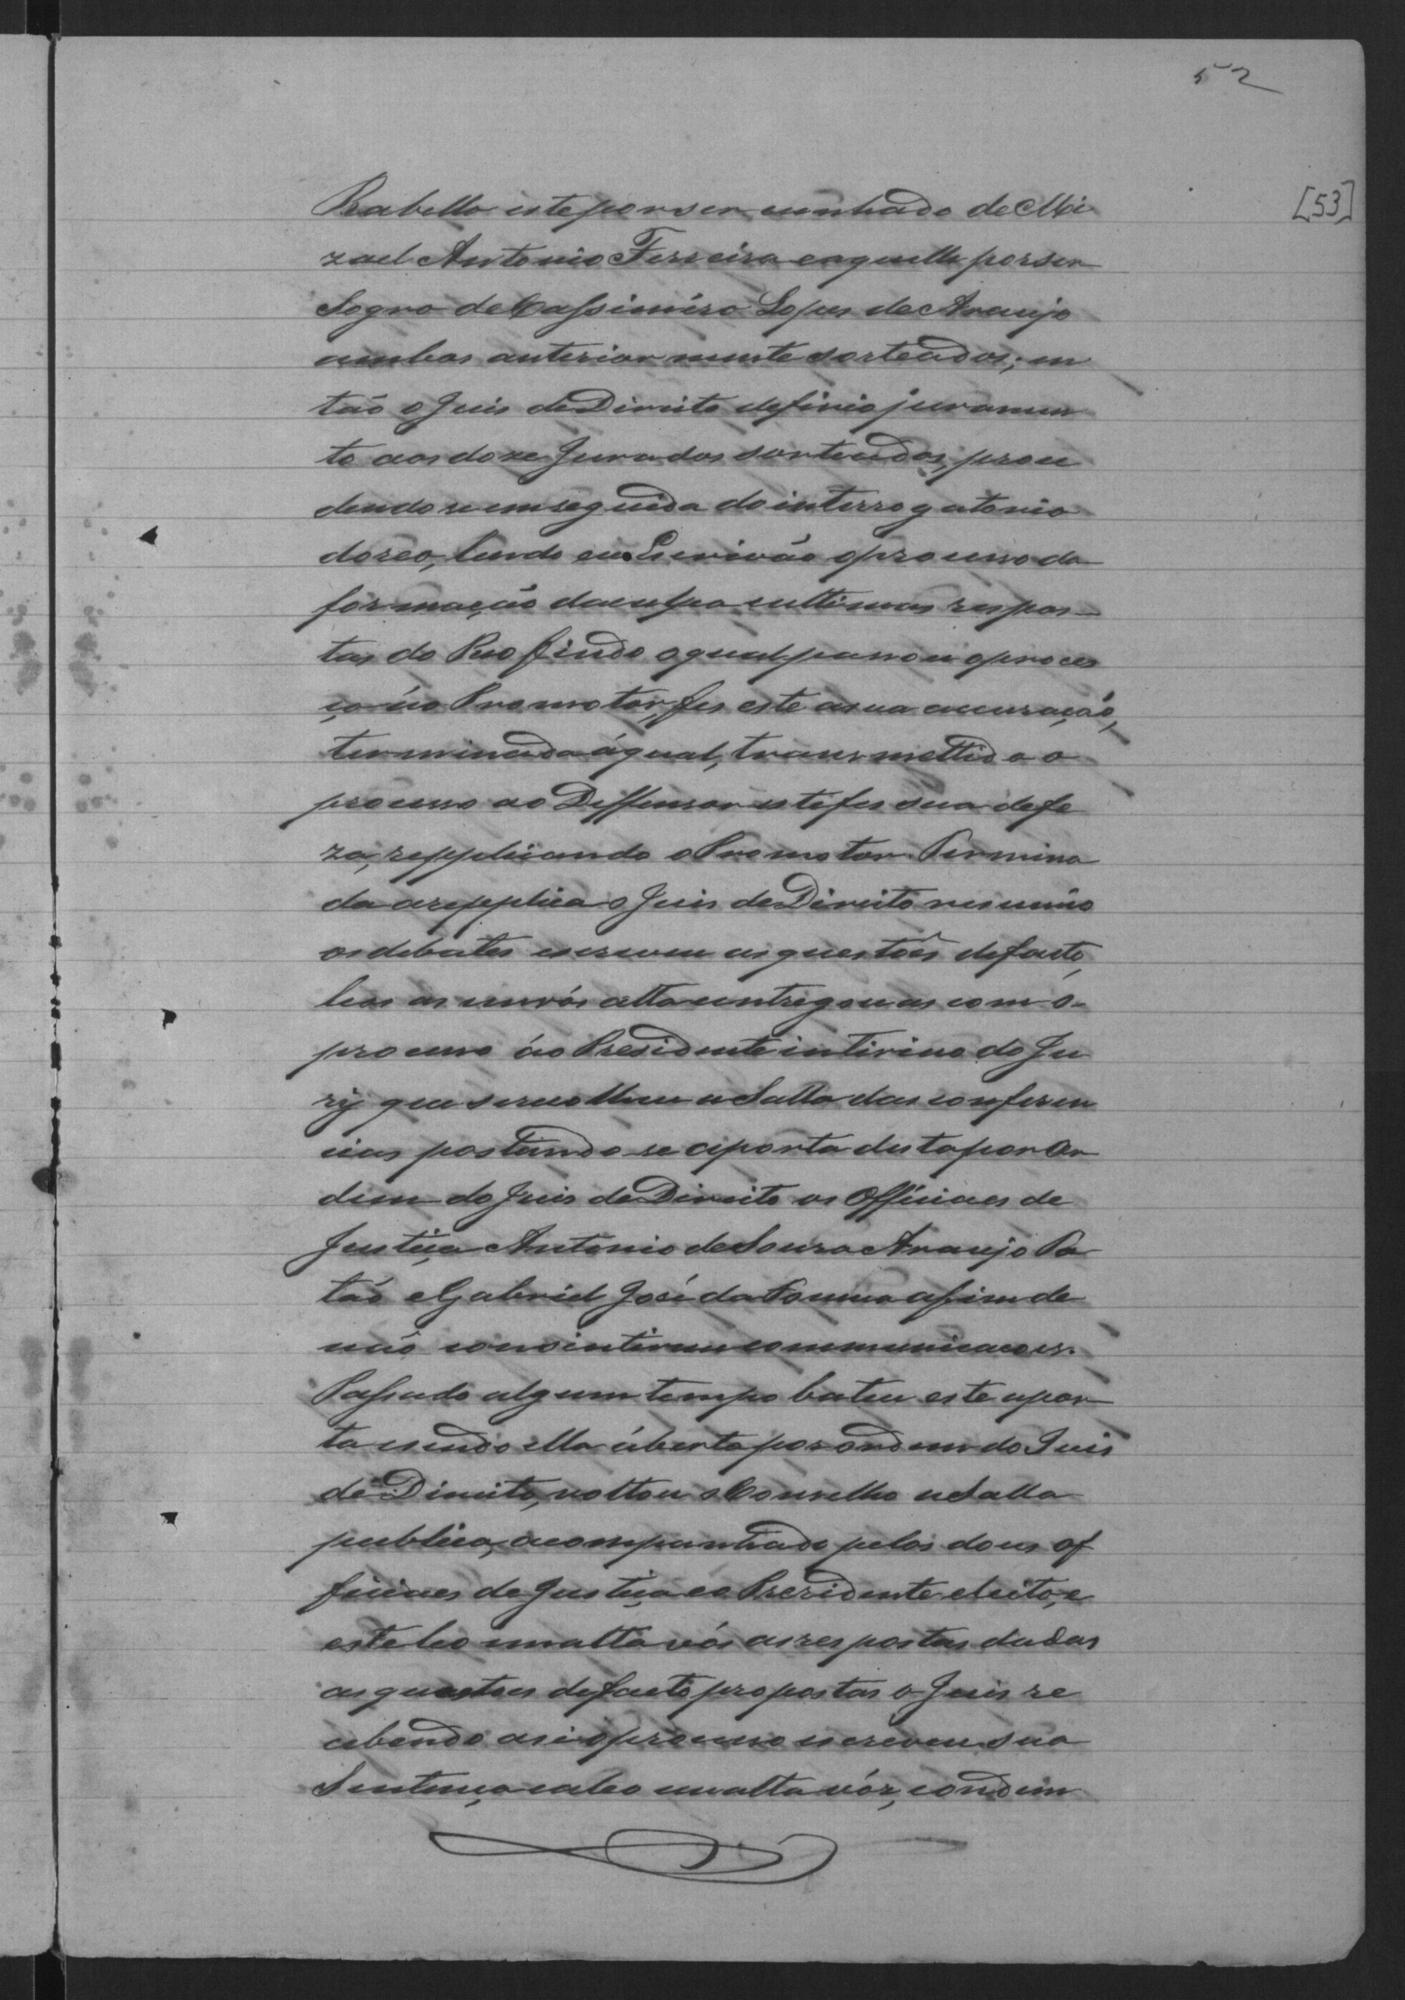 52
[53]
Rabello este por ser cunhado de Mi
zael Antonio Ferreira e aquelle por ser
Sogro de Cassimiro Lopes de Araujo
ambos anteriormente sorteados; en
tão o Juis de Direito defirio juramen
to aos doze Jurados sorteados, proce
dendo se em seguida do interrogatorio
do reo, lendo eu Escrivão o processo da
formação da culpa e ultimas respos
tas do Reo findo o qual passou o proces
ço ao Promotor, fes este a sua accusação,
terminada á qual, transmettido o
processo ao Deffensor este fes sua defe
za, repplicando o Promotor. Termina
da a repplica o Juis de Direito resumio
os debates escreveu as questões de facto,
leos as em vós alta entregou as com o
processo ao Presidente intirino do Ju
ry que se recolheu a Salla das conferen
cias postando-se a porta desta por Or
dem do Juis de Direito os Officiaes de
Justiça Antonio de Souza Araujo Pa
tão e Gabriel José da afim de
não communicacoes.
Passado algum tempo bateu este a por
ta e sendo ella áberta por ordem do Juis
de Direito, voltou o Conselho a Salla
publica, acompanhado pelos dous of
ficiaes de Justiça e o Prezidente eleito, e
este leo em alta vós as respostas dadas
as questoes de facto propostas o Juis re
cebendo as e o processo escreveu sua
Sentença e a leo em alta vóz, condem